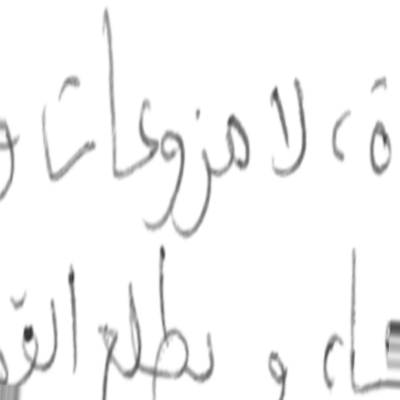 ة، لا مزروعات و
ـاء و يطلع القـ